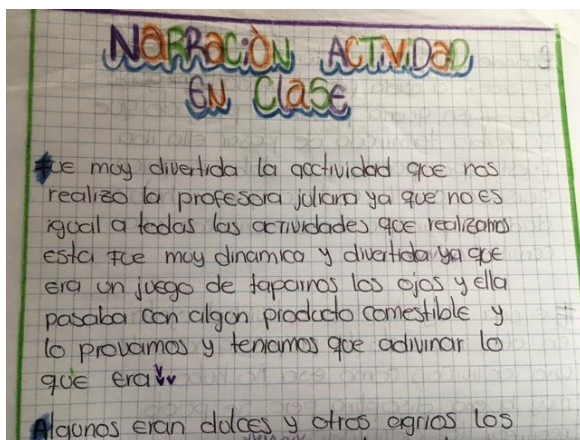 NARRACIÒN ACTIVIDAD
EN CLASE
Fue muy divertida la aactividad que nos
realizo la profesora juliana ya que no es
igual a todas las actividades que realizamos
esta fue muy dinamica y divertida ya que
era un juego de taparnos los ojos y ella
pasaba con algun producto comestible y
lo provamos y teniamos que adivinar lo
que era
Algunos eran dulces y otros agrios los